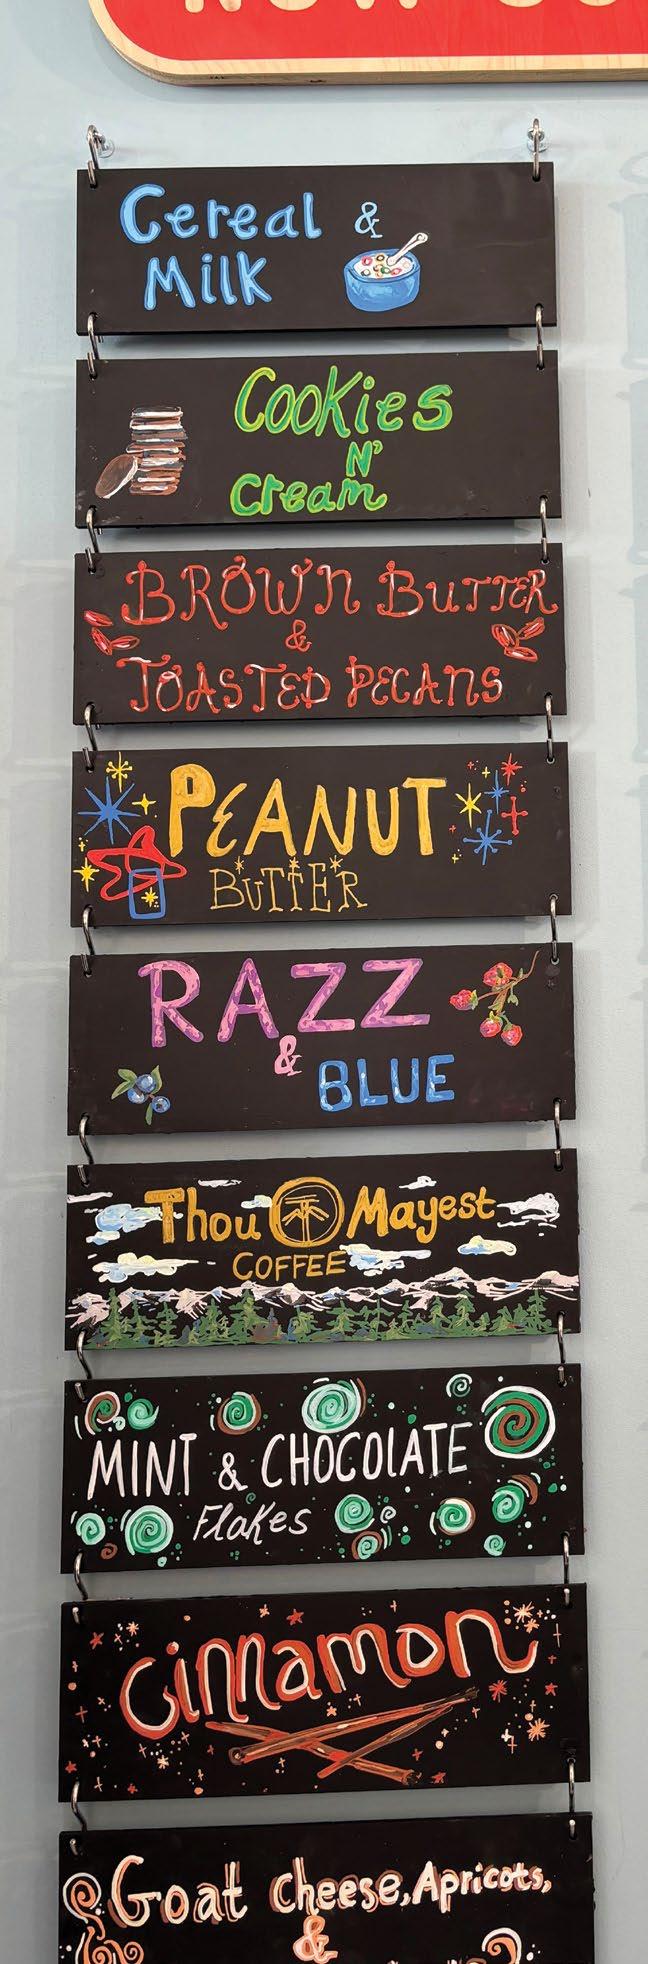 Cereal &
Milk
Cookies
N'
Cream
BROWN BUTTER
&
TOASTED PECANS
PEANUT
BUTTER
RAZZ
&
BLUE
Thou Mayest
COFFEE
MINT & CHOCOLATE
Flakes
Cinnamon
Goat Cheese, Apricots,
&